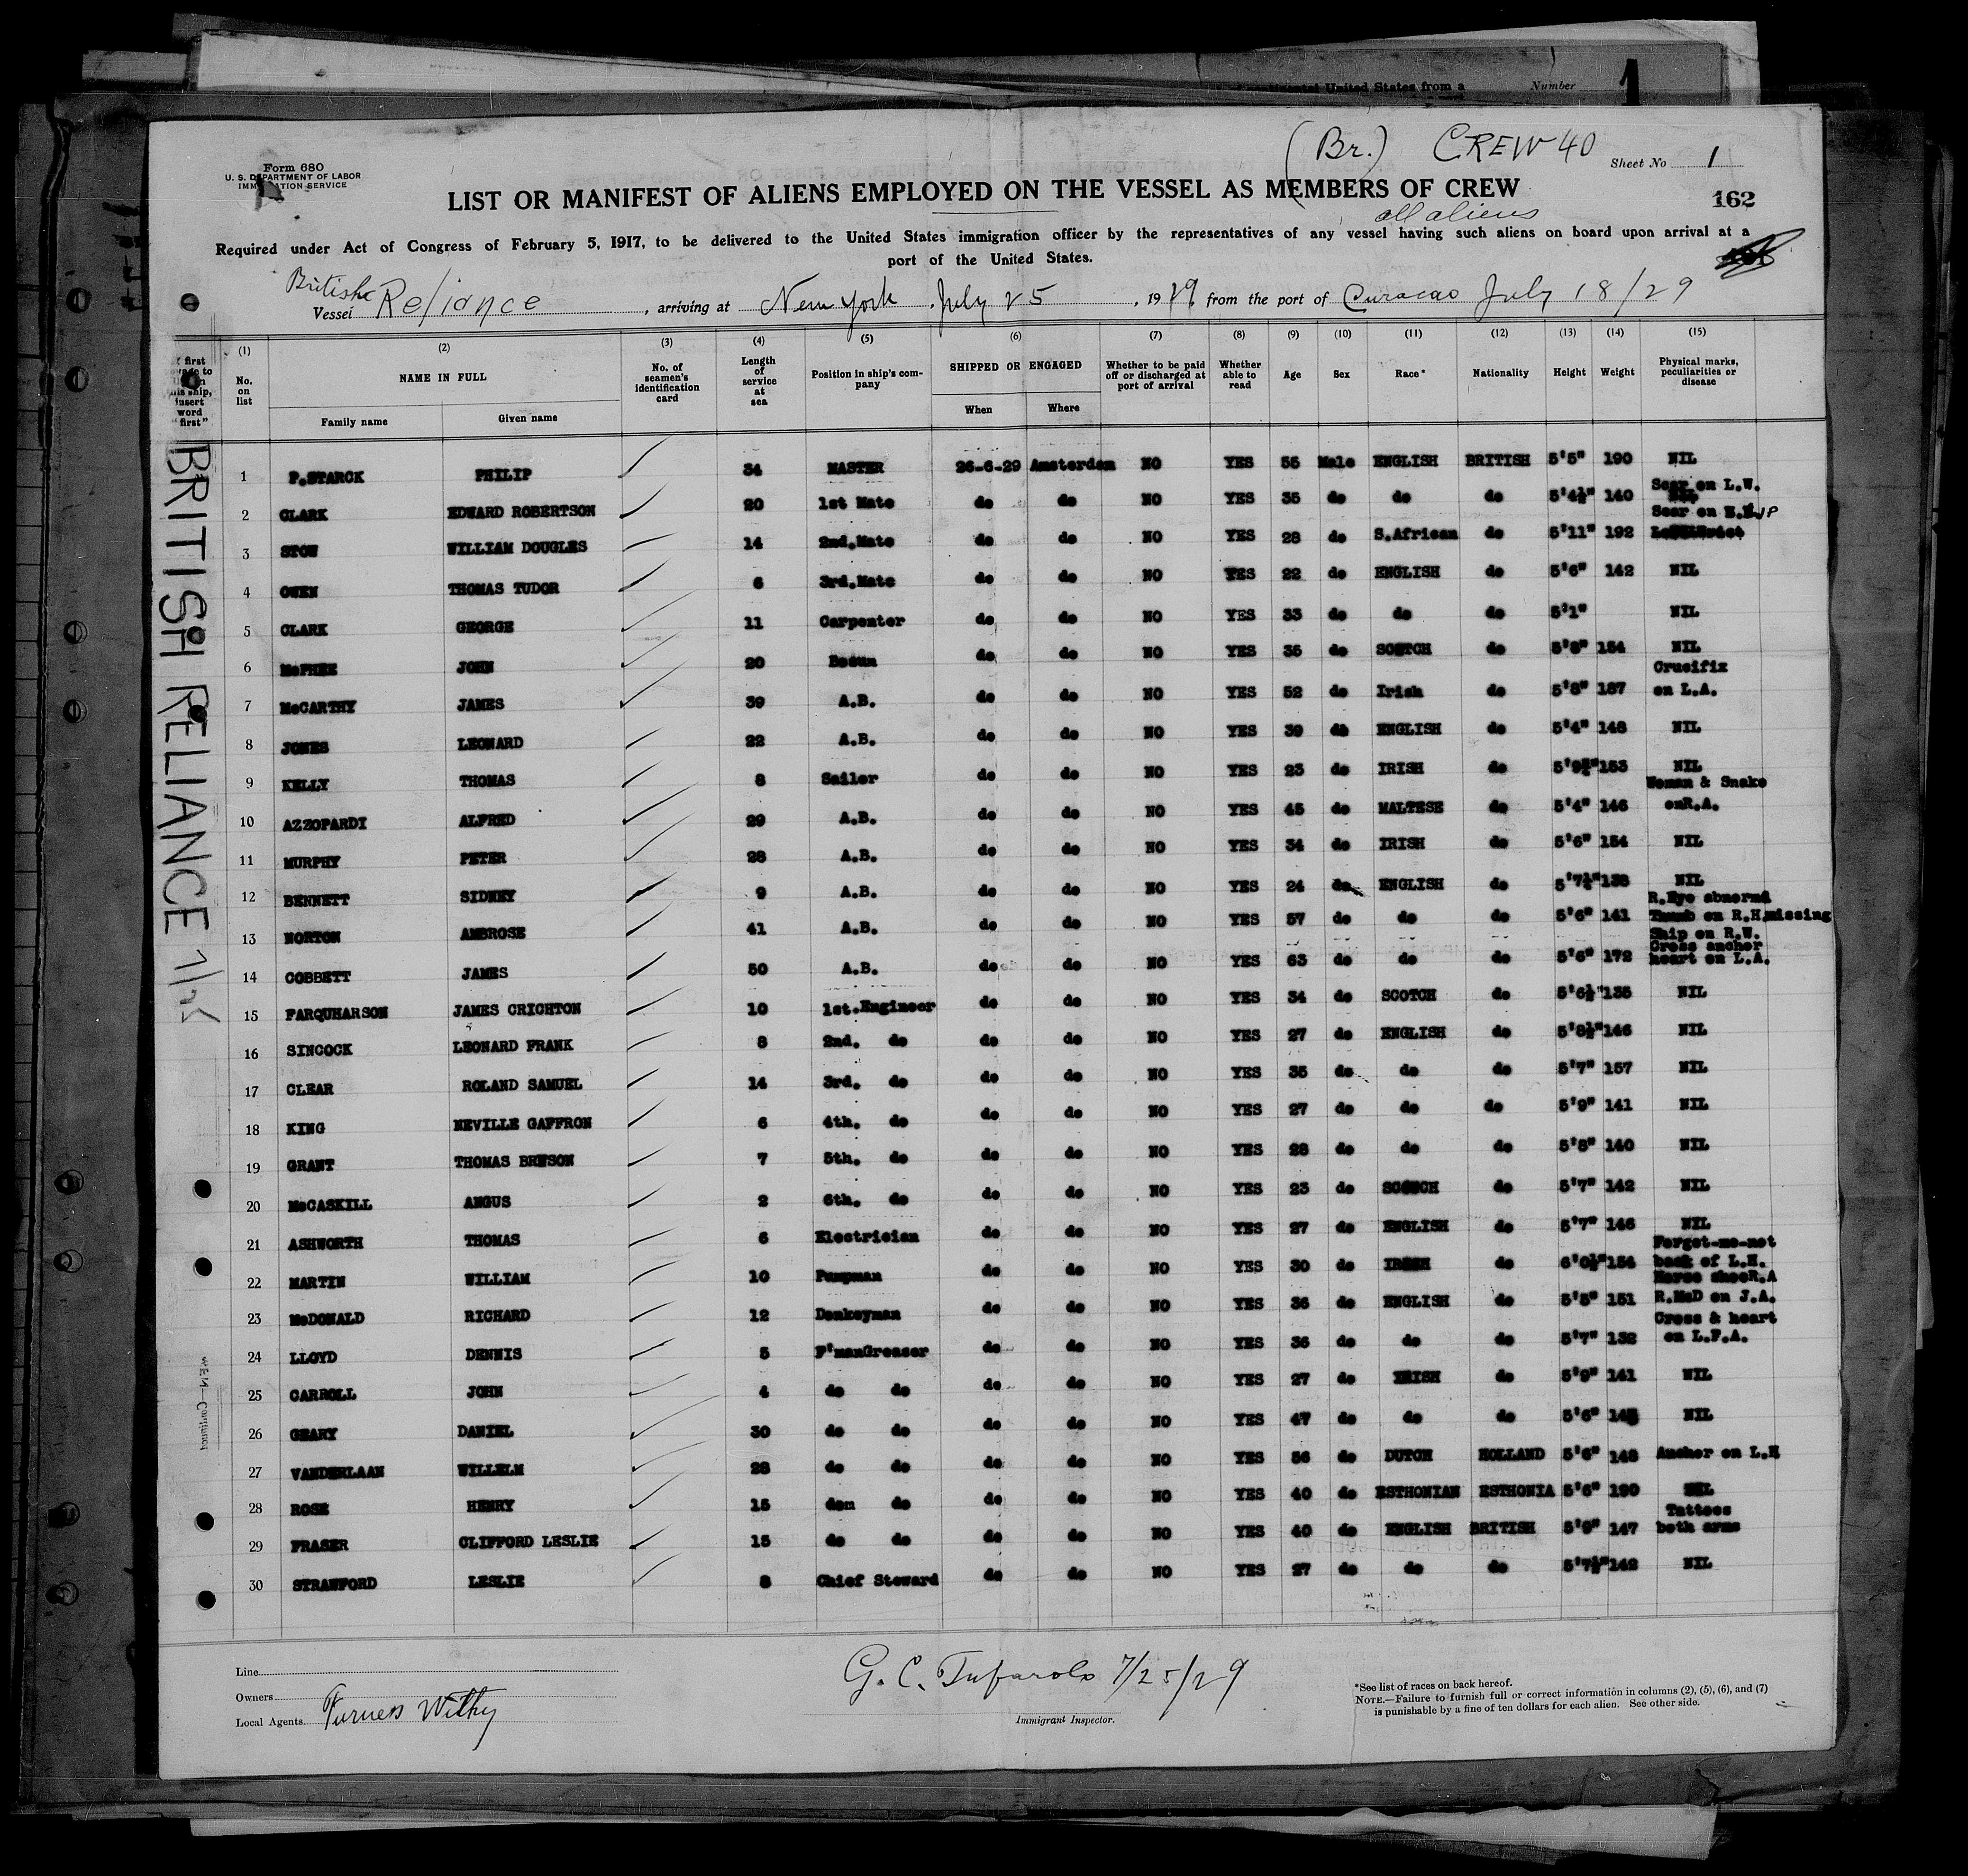 continental United States from a Number 1
(Br.) CREW 40 Sheet No 1
Form 680
U. S. DEPARTMENT OF LABOR
IMMIGRATION SERVICE
LIST OR MANIFEST OF ALIENS EMPLOYED ON THE VESSEL AS MEMBERS OF CREW
162
all aliens
Required under Act of Congress of February 5, 1917, to be delivered to the United States immigration officer by the representatives of any vessel having such aliens on board upon arrival at a
port of the United States.
Vessel British Reliance, arriving at New York July 25, 1929 from the port of Curacao July 18/29
(1) (2) (3) (4) (5) (6) (7) (8) (9) (10) (11) (12) (13) (14) (15)
first word "first" No. on list NAME IN FULL Family name Given name No. of seamen's identification card Length of service at sea Position in ship's company SHIPPED OR ENGAGED When Where Whether to be paid off or discharged at port of arrival Whether able to read Age Sex Race* Nationality Height Weight Physical marks, peculiarities or disease
BRITISH RELIANCE 7/25
1 P.STARCK PHILIP 34 MASTER 26-6-29 Amsterdam NO YES 55 Male ENGLISH BRITISH 5'5" 190 NIL
2 CLARK EDWARD ROBERTSON 20 1st Mate do do NO YES 35 do do do 5'4½" 140 Scar on L.W.
3 STOW WILLIAM DOUGLES 14 2nd.Mate do do NO YES 28 do S.African do 5'11" 192 Scar on
4 OWEN THOMAS TUDOR 6 3rd.Mate do do NO YES 22 do ENGLISH do 5'6" 142 NIL
5 CLARK GEORGE 11 Carpenter do do NO YES 33 do do do 5'1" NIL
6 McPHEE JOHN 20 Bosun do do NO YES 35 do SCOTCH do 5'8" 154 NIL
7 McCARTHY JAMES 39 A.B. do do NO YES 52 do Irish do 5'8" 187 Crucifix on L.A.
8 JONES LEONARD 22 A.B. do do NO YES 39 do ENGLISH do 5'4" 148 NIL
9 KELLY THOMAS 8 Sailor do do NO YES 23 do IRISH do 153 NIL
10 AZZOPARDI ALFRED 29 A.B. do do NO YES 45 do MALTESE do 5'4" 146 Woman & Snake onR.A.
11 MURPHY PETER 28 A.B. do do NO YES 34 do IRISH do 5'6" 154 NIL
12 BENNETT SIDNEY 9 A.B. do do NO YES 24 do ENGLISH do 5'7½" 138 NIL
13 NORTON AMBROSE 41 A.B. do do NO YES 57 do do do 5'6" 141 R.Eye abnormal Thumb on R.H.missing
14 COBBETT JAMES 50 A.B. do do NO YES 63 do do do 5'6" 172 Ship on R.W. Cross anchor heart on L.A.
15 FARQUHARSON JAMES CRICHTON 10 1st.Engineer do do NO YES 34 do SCOTCH do 5'6½" 135 NIL
16 SINCOCK LEONARD FRANK 8 2nd. do do do NO YES 27 do ENGLISH do 5'8½" 146 NIL
17 CLEAR ROLAND SAMUEL 14 3rd. do do do NO YES 35 do do do 5'7" 157 NIL
18 KING NEVILLE GAFFRON 6 4th. do do do NO YES 27 do do do 5'9" 141 NIL
19 GRANT THOMAS BREWSON 7 5th. do do do NO YES 28 do do do 5'8" 140 NIL
20 McCASKILL ANGUS 2 6th. do do do NO YES 23 do SCOTCH do 5'7" 142 NIL
21 ASHWORTH THOMAS 6 Electrician do do NO YES 27 do ENGLISH do 5'7" 146 NIL
22 MARTIN WILLIAM 10 Pumpman do do NO YES 30 do IRISH do 6'0½" 154 Forget-me-not back of L.H. Horse shoeR.A
23 McDONALD RICHARD 12 Donkeyman do do NO YES 36 do ENGLISH do 5'5" 151 R.McD on J.A.
24 LLOYD DENNIS 5 F'manGreaser do do NO YES 36 do do do 5'7" 132 Cross & heart on L.F.A.
25 CARROLL JOHN 4 do do do do NO YES 27 do IRISH do 5'9" 141 NIL
26 GEARY DANIEL 30 do do do do NO YES 47 do do do 5'6" NIL
27 VANDERLAAN WILLELM 28 do do do do NO YES 56 do DUTCH HOLLAND 5'6" 148 Anchor on L.H
28 ROSE HENRY 15 dom do do do NO YES 40 do ESTHONIAN ESTHONIA 5'6" 190 NIL
29 FRASER CLIFFORD LESLIE 15 do do do do NO YES 40 do ENGLISH BRITISH 5'9" 147 Tattoos both arms
30 STRAWFORD LESLIE 8 Chief Steward do do NO YES 27 do do do 5'7½" 142 NIL
Line
Owners
Local Agents Furness Withy
G. C. Tufarolo 7/25/29
Immigrant Inspector.
*See list of races on back hereof.
NOTE.—Failure to furnish full or correct information in columns (2), (5), (6), and (7)
is punishable by a fine of ten dollars for each alien. See other side.